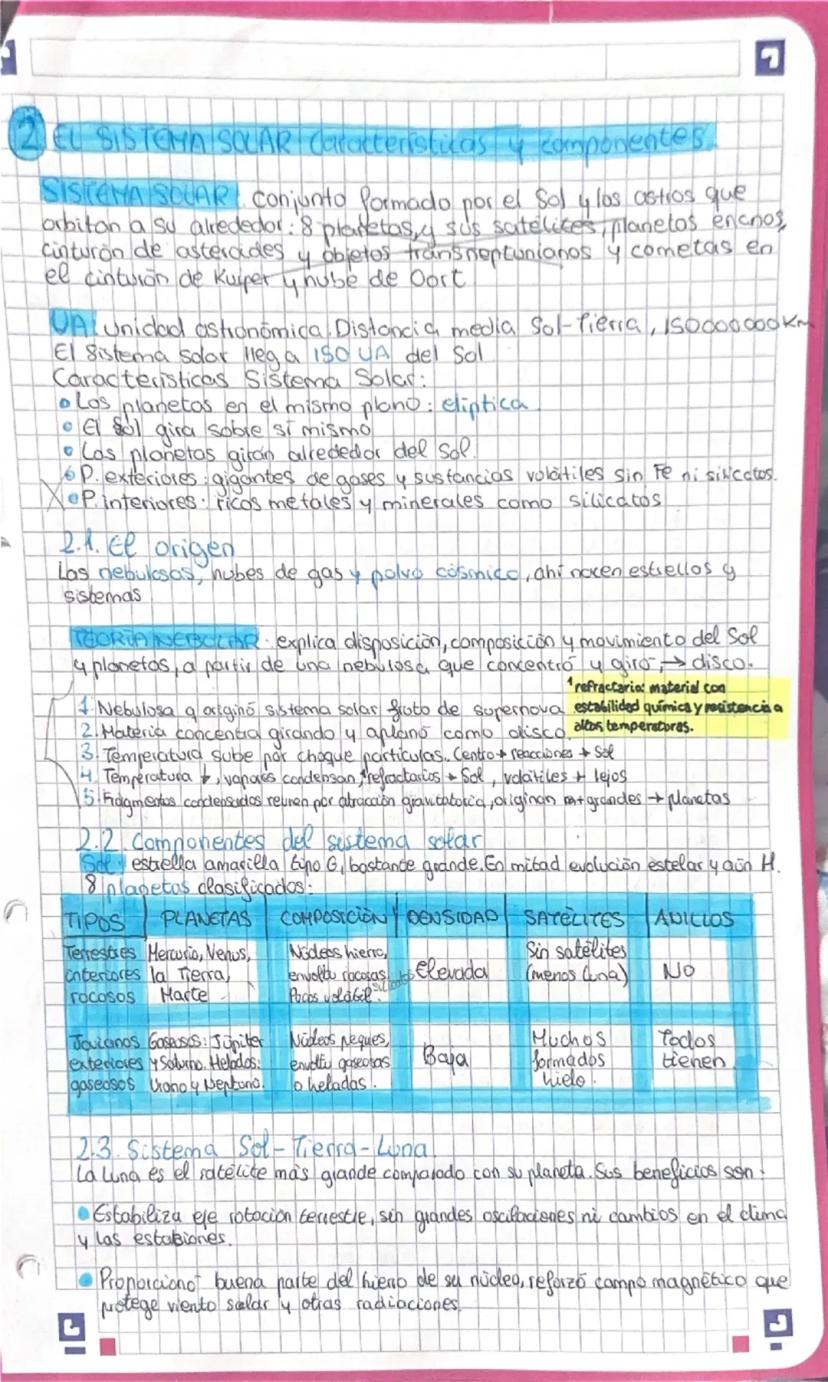 2 EL SISTEMA SOLAR Características y componentes
SISTEMA SOLAR: conjunto formado por el Sol y los astros que
orbitan a su alrededor: 8 planetas, y sus satélites, planetas enanos,
cinturón de asteroides y objetos transneptunianos y cometas en
el cinturón de Kuiper y nube de Oort
UA: unidad astronómica. Distancia media Sol-Tierra, 150000000 Km
El sistema solar llega 150 UA del Sol
Características Sistema Solar:
• Los planetas en el mismo plano: elíptica
• El Sol gira sobre sí mismo
• Los planetas giran alrededor del Sol.
• P. exteriores: gigantes de gases y sustancias volátiles sin Fe ni silicatos.
• P. interiores: ricos metales y minerales como silicatos
2.1. El origen
Las nebulosas, nubes de gas y polvo cósmico, ahí nacen estrellas y
sistemas
TEORÍA NEBULAR: explica disposición, composición y movimiento del Sol
y planetas, a partir de una nebulosa que concentró y giró, → disco.
¹refractario: material con
estabilidad química y resistencia a
altas temperaturas.
1. Nebulosa q originó sistema solar fruto de supernova
2. Materia concentra girando y aplanó como disco.
3. Temperatura sube por choque partículas. Centro → reacciones → Sol
4. Temperatura ↓, vapores condensan, ¹refractarios → Sol, volátiles → lejos
5. Fragmentos condensados reunen por atracción gravitatoria, originan m+ grandes → planetas
2.2. Componentes del sistema solar
Sol: estrella amarilla tipo G, bastante grande. En mitad evolución estelar y aún H.
8 planetas clasificados:
TIPOS PLANETAS COMPOSICIÓN DENSIDAD SATÉLITES ANILLOS
Terrestres interiores rocosos
Mercurio, Venus, la Tierra, Marte
Núcleos hierro, envoltu rocosas Pocos volátil.
Elevada
Sin satélites (menos Luna)
No
Jovianos exteriores gaseosos
Gaseosos: Júpiter y Saturno. Helados: Urano y Neptuno.
Núcleos peques, envoltu gaseosas o heladas.
Baja
Muchos formados hielo.
Todos tienen
2.3. Sistema Sol-Tierra-Luna
La Luna es el satélite más grande comparado con su planeta. Sus beneficios son:
• Estabiliza eje rotación terrestre, sin grandes oscilaciones ni cambios en el clima
y las estaciones.
• Proporcionó buena parte del hierro de su núcleo, reforzó campo magnético que
protege viento solar y otras radiaciones.